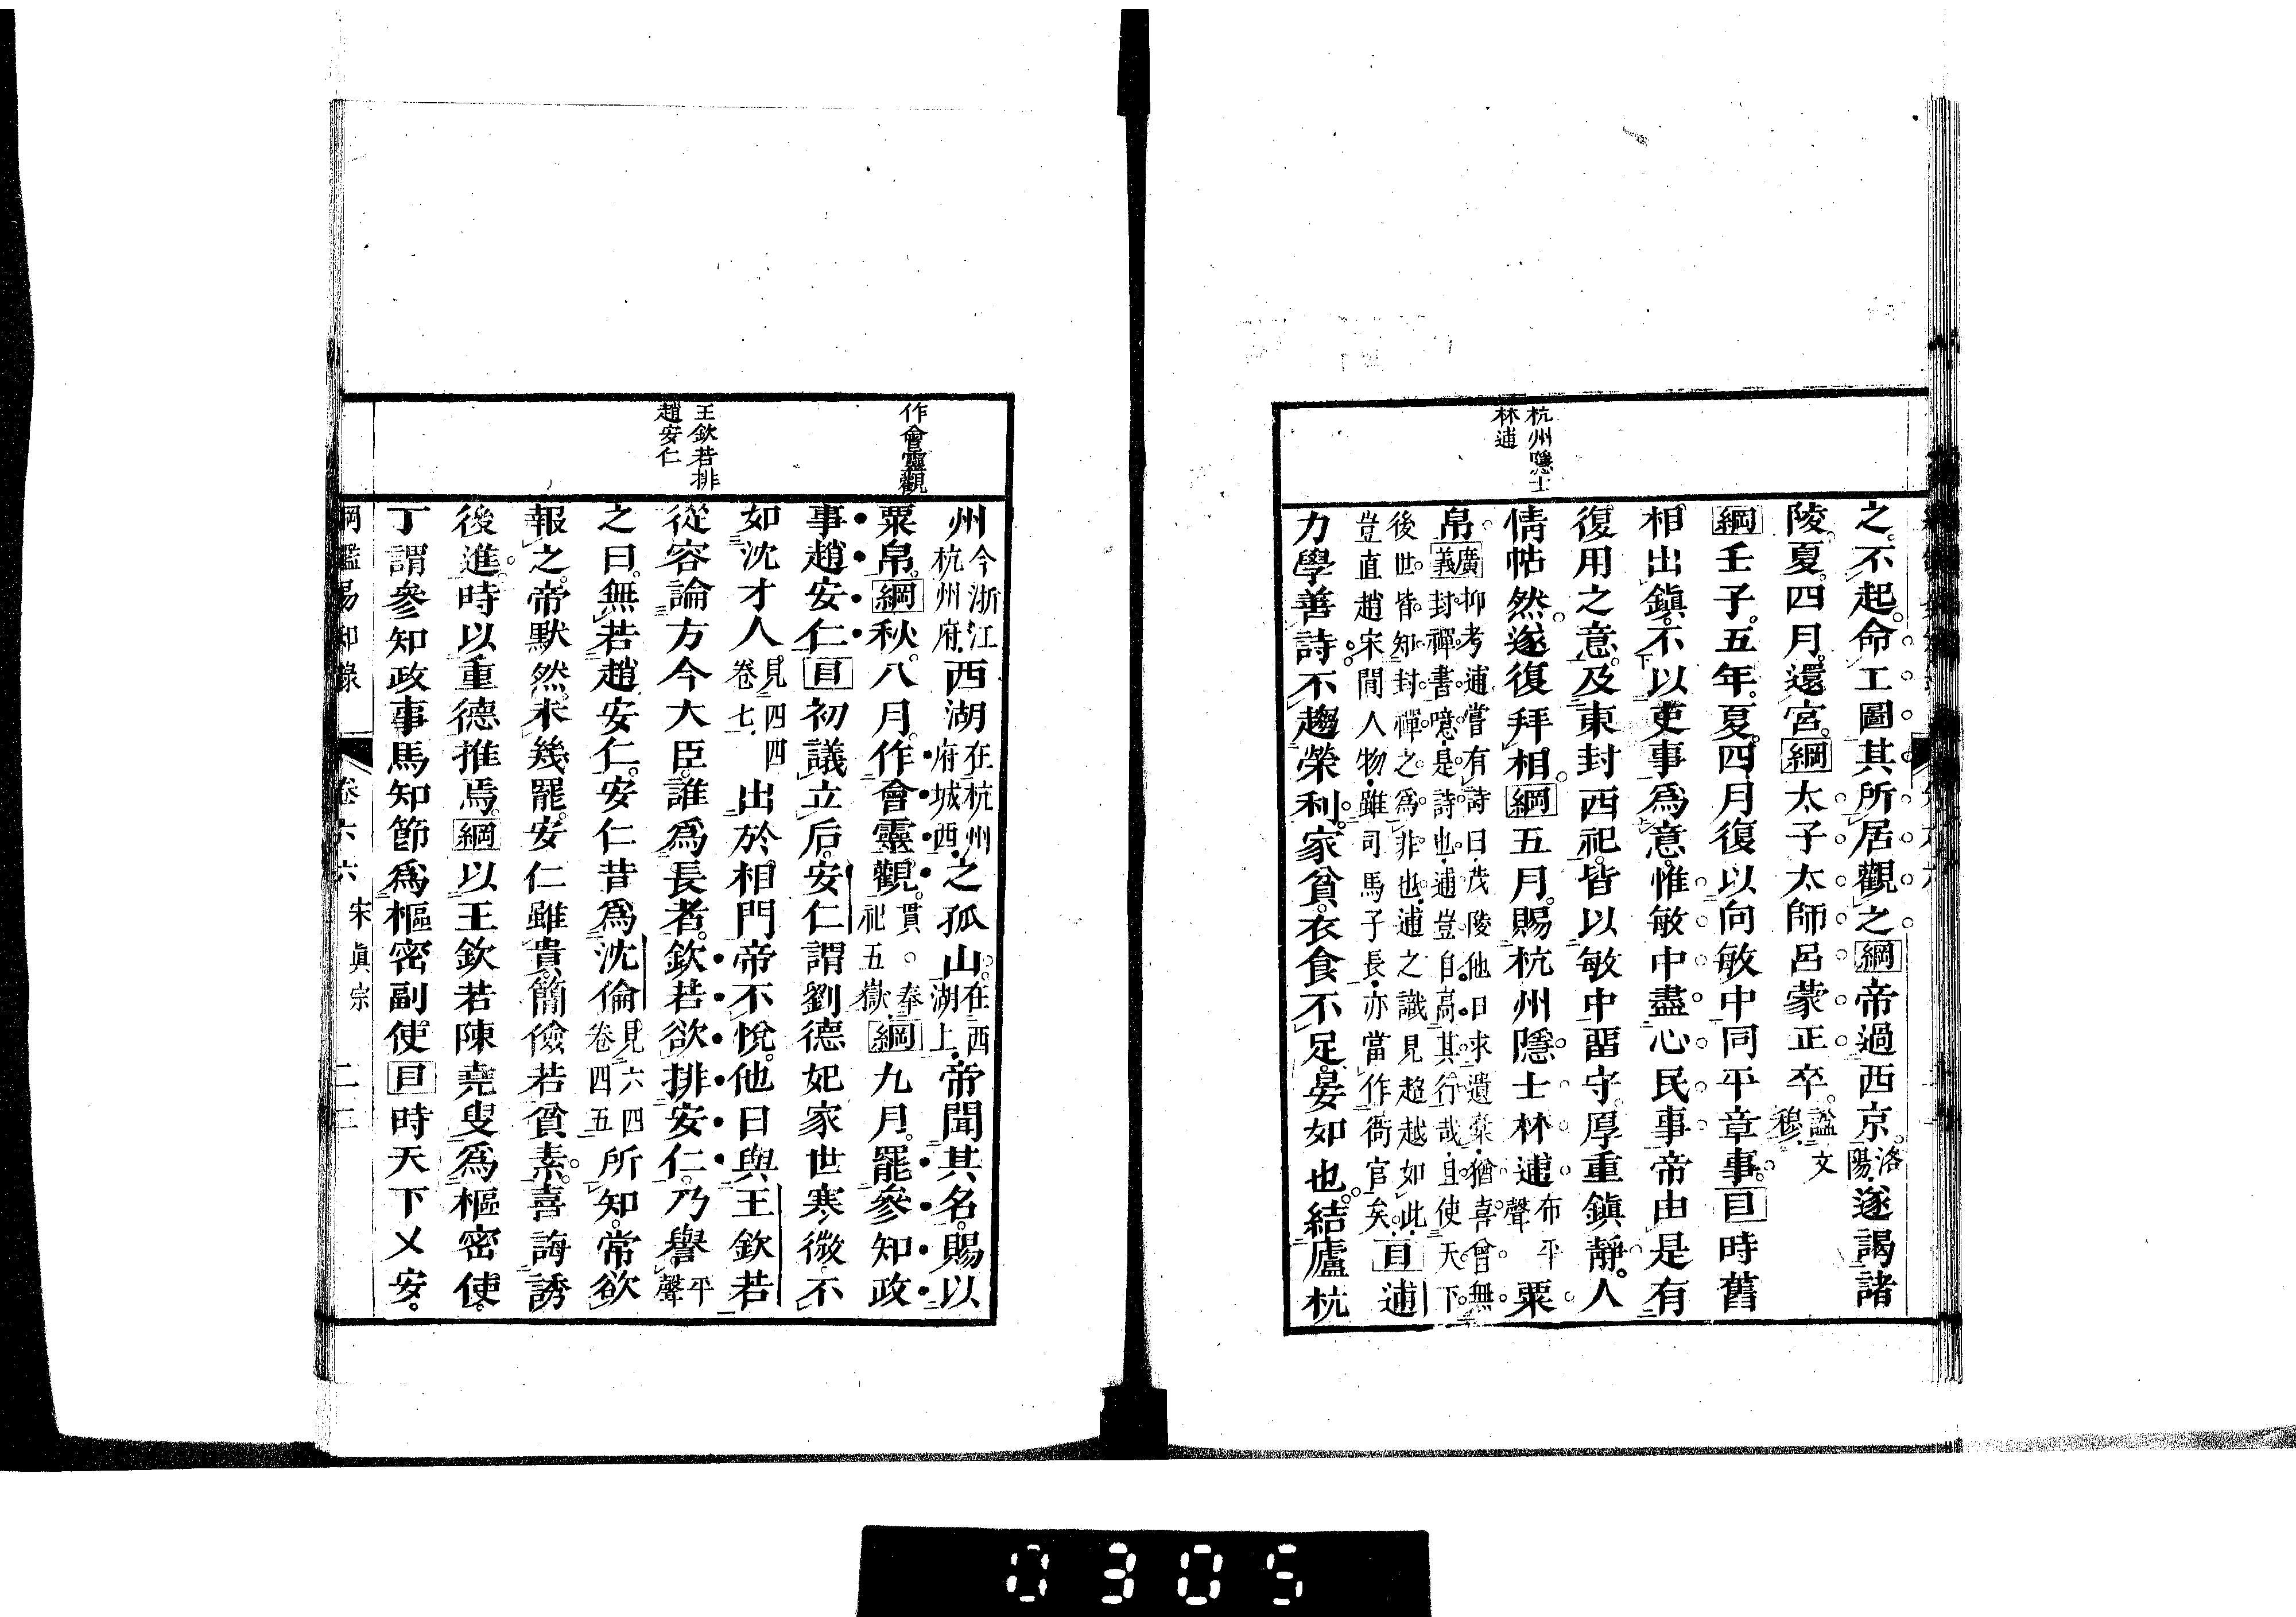 杭州隱士
林逋
之。不起。命工圖其所居觀之綱帝過西京。洛陽遂謁諸
陵。夏四月。還宮。綱太子太師呂蒙正卒。諡文穆
綱壬子。五年。夏。四月復以向敏中同平章事。目時舊
相出鎮。不以吏事爲意。惟敏中盡心民事。帝由是有
復用之意。及東封西祀。皆以敏中畱守。厚重鎮靜。人
情帖然。遂復拜相。綱五月。賜杭州隱士林逋布平聲粟
帛。廣義抑考逋嘗有詩曰茂陵他日求遺稾猶喜曾無
封禪書噫是詩也逋豈自高其行哉且使天下
後世皆知封禪之爲非也逋之識見超越如此
豈直趙宋閒人物雖司馬子長亦當作衙官矣目逋
力學善詩。不趨榮利。家貧。衣食不足。晏如也。結廬杭
作會靈觀
王欽若排
趙安仁
州今浙江杭州府西湖在杭州府城西之孤山。在西湖上帝聞其名。賜以
粟帛。綱秋。八月。作會靈觀。貫。奉祀五嶽綱九月。罷參知政
事趙安仁目初議立后。安仁謂劉德妃家世寒微不
如沈才人見四四卷七出於相門帝不悅。他日與王欽若
從容論方今大臣。誰爲長者。欽若欲排安仁。乃譽平聲
之曰。無若趙安仁。安仁昔爲沈倫見六四卷四五所知。常欲
報之。帝默然。未幾罷。安仁雖貴。簡儉若貧素。喜誨誘
後進。時以重德推焉。綱以王欽若陳堯叟爲樞密使。
丁謂參知政事馬知節爲樞密副使。目時天下乂安。
綱鑑易知錄 卷六六 宋眞宗 二三
0305